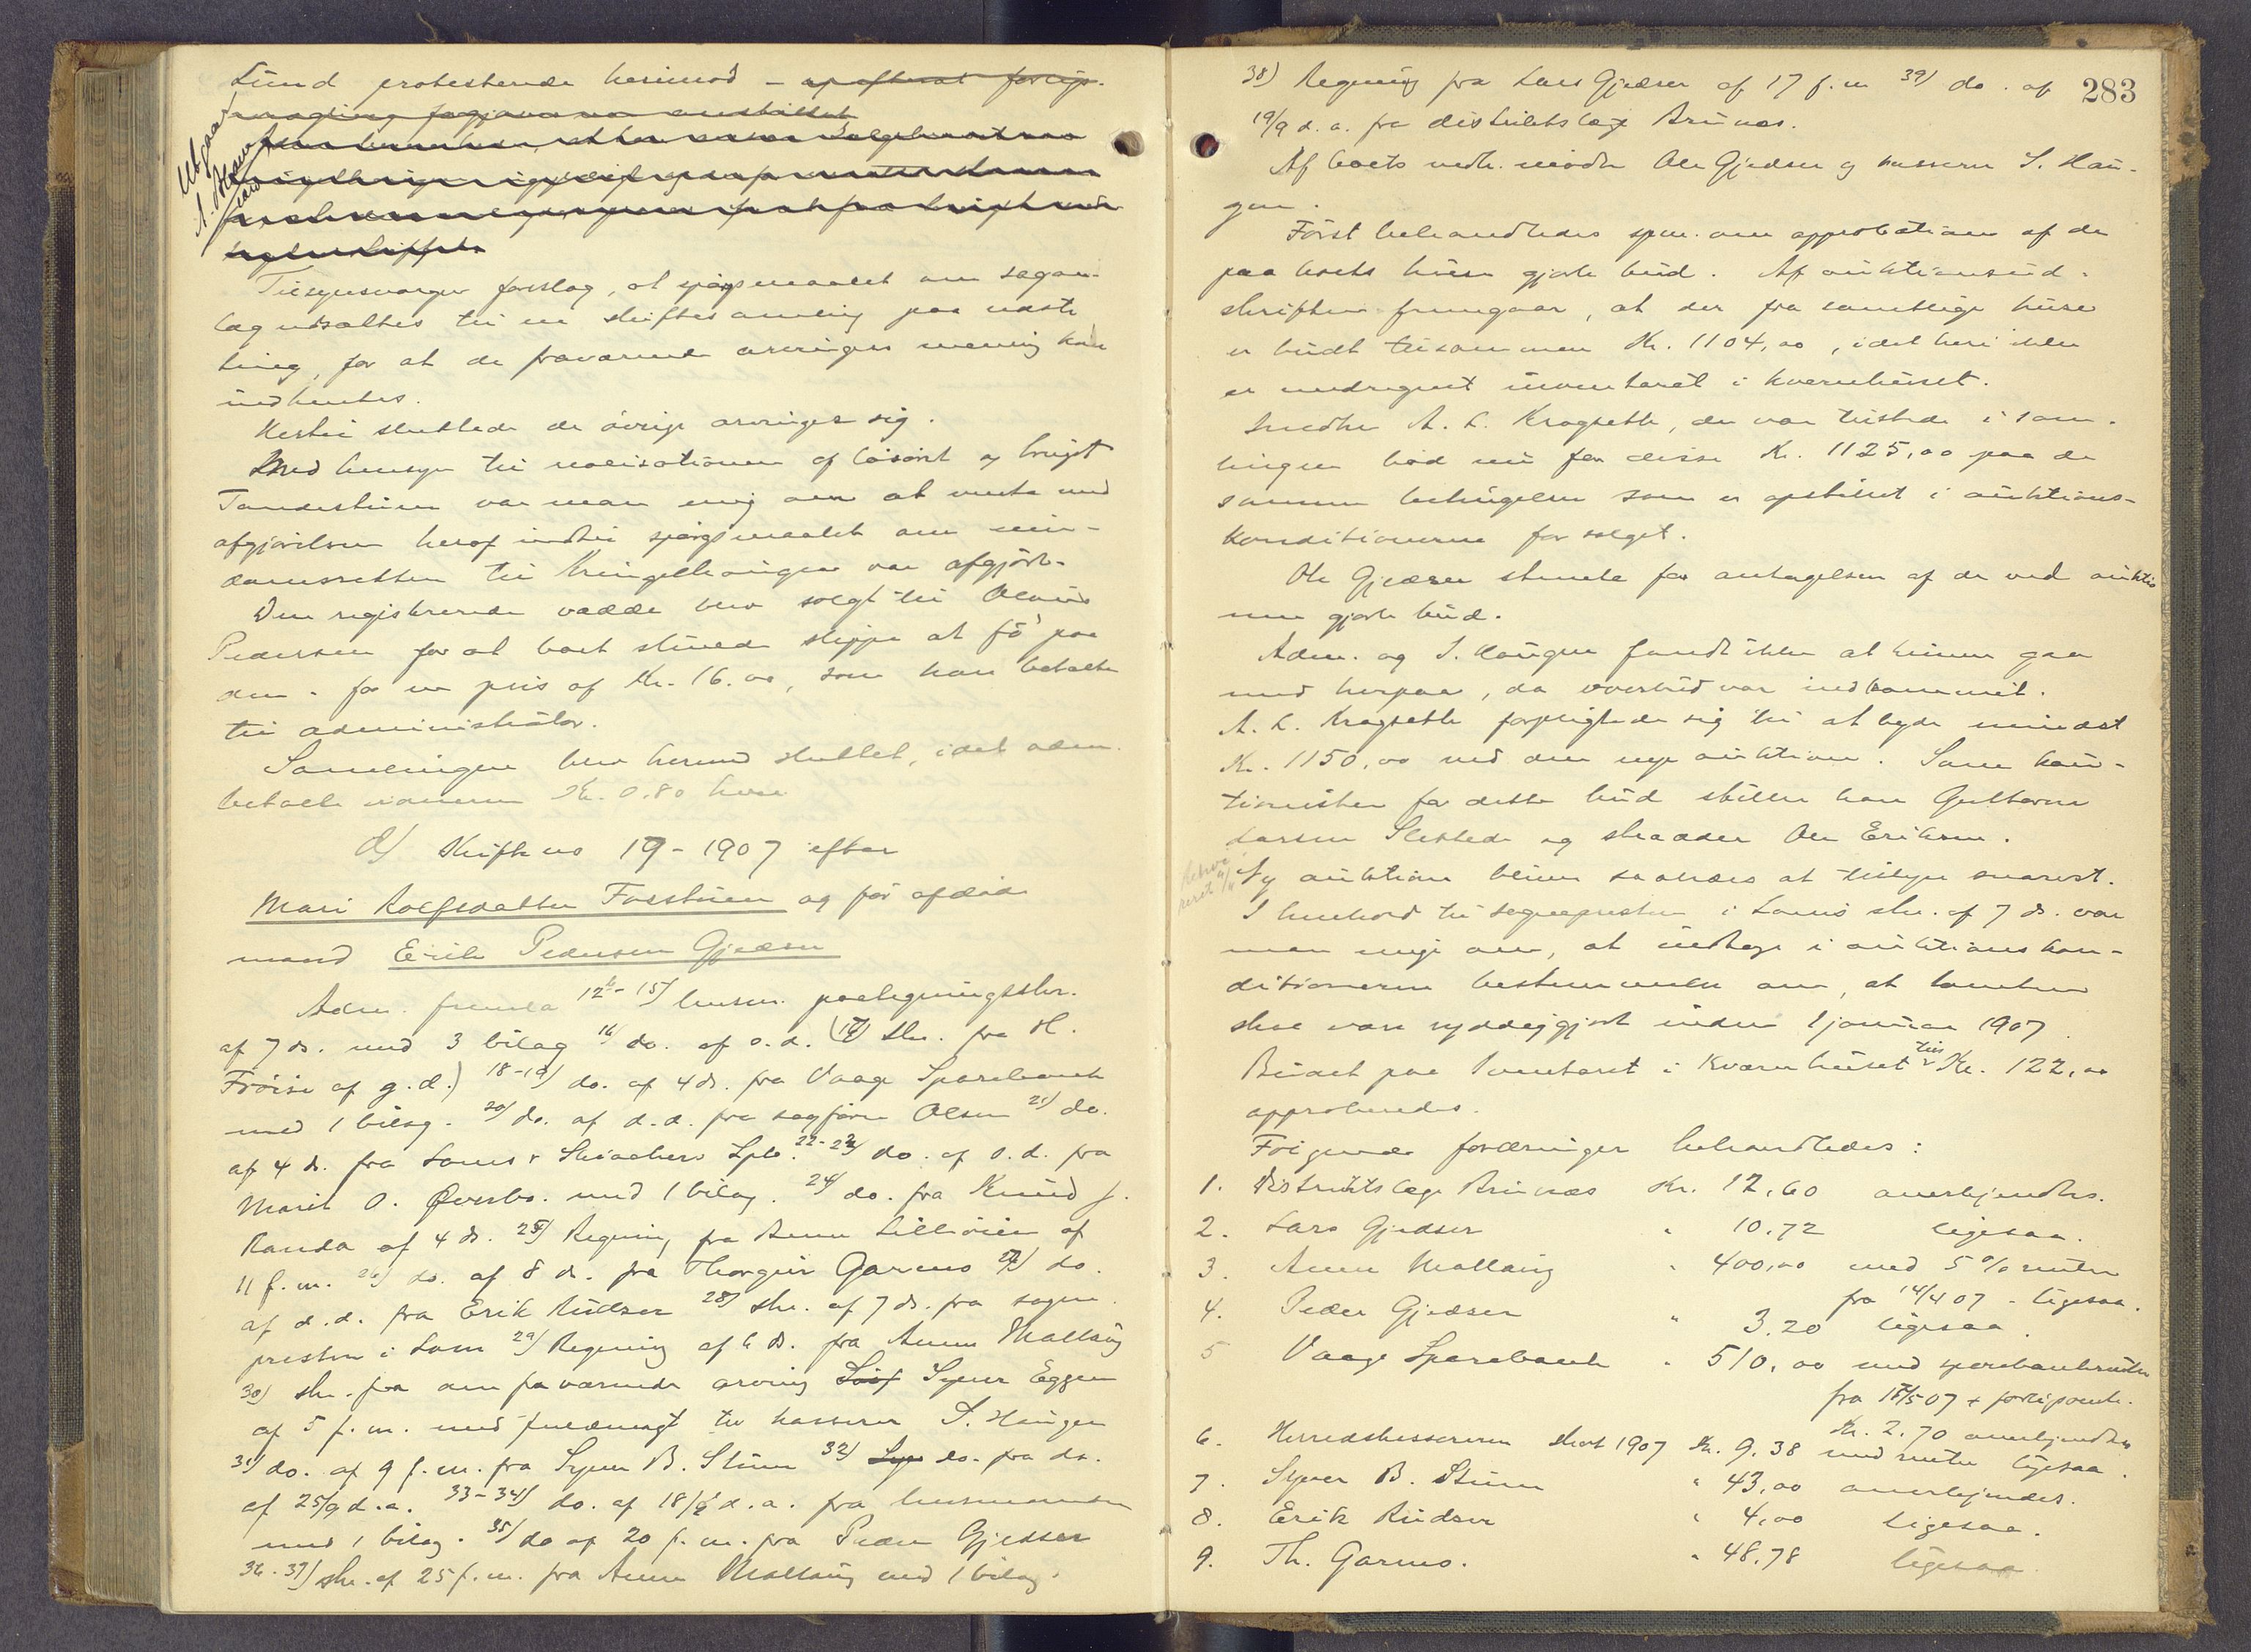 Lund protesterede herimod -
Utgaar
A. Olsen
Tilsynsværger foreslog, at spörgsmaalet om sagan-
læg udsættes til en skiftesamling paa næste
ting, for at de fraværende arvingers mening kan
indhentes.
Hertil sluttede de övrige arvinger sig.
Med hensyn til realisationen af lösöret og bruget
Tandestuen var man enig om at vente med
afgjörelsen heraf indtil spörgsmaalet om ein-
domsretten til kringelhaugen var afgjort.
Den registrerede vædde blev solgt til Olaus
Pedersen for at boet skulde slippe at fö paa
den - for en pris af Kr. 16.00, som han betalte
til administrator.
Samlingen blev hermed sluttet, idet adm.
betalte vidnerne Kr. 0.80 hver
d) Skifte no 19 - 1907 efter
Mari Rolfsdatter Fosstuen og för afdöde
mand Erik Pedersen Gjedsen
Adm. fremla 12-15) lensm. paategningsskr.
af 7 ds. med 3 bilag 16) do. af s.d. (17) Skr. fra H.
Fröise af g.d.) 18-19) do. af 4 ds. fra Vaage Sparebank
med 1 bilag. 20) do. af d.d. fra sagförer Olsen 21) do.
af 4 ds. fra Loms & Skiaakers Spb. 22-23) do. af s.d. fra
Marit O. Øversbo. med 1 bilag. 24) do. fra Knud J.
Randa af 4 ds. 25) Regning fra Anne Lillöien af
11 f.m. 26) do. af 8 ds. fra Thorgeir Garmo 27) do.
af d.d. fra Erik Rudser 28) skr. af 7 ds. fra sogne-
presten i Lom 29) Regning af 6 ds. fra Anne Mallaug
30) skr. fra den fraværende arving Syver Eggen
af 5 f.m. med fuldmagt til kasserer S. Haugen
31) do. af 9 f.m. fra Syver B. Stuen 32) do. fra do.
af 25/9 d.a. 33-34) do. af 18/9 d.a. fra lensmanden
med 1 bilag. 35) do af 20 f.m. fra Peder Gjedser
36-37) skr. af 25 f.m. fra Anne Mallaug med 1 bilag.
283
38) Regning fra Lars Gjedser af 17 f.m 39) do. af
19/9 d.a. fra distriktslæge Arunæs.
Af boets vedk. mödte Ole Gjedsen og kasserer S. Hau-
gen.
Först behandledes spm. om approbation af de
paa boets huse gjorte bud. Af auktionsud-
skriften fremgaar, at der fra samtlige huse
er budt tilsammen Kr. 1104,00, idet heri ikke
er medregnet inventaret i kvernhuset.
Smedm A. L. Kragsette, der var tilstede i sam-
lingen böd nu for disse Kr. 1125,00 paa de
samme betingelser som er opstillet i auktions-
konditionerne for salget.
Ole Gjedsen stemte for antagelsen af de ved auktio
nen gjorte bud.
Adm. og S. Haugen fandt ikke at kunne gaa
med herpaa, da overbud var indkommet.
A. L. Kragsette forpligtede sig til at byde mindst
Kr. 1150,00 ved den nye auktion. Som kau-
tionister for dette bud stiller han Guttorm
Larsen Sletlede og skrædder Ole Eriksen.
Ny auktion bliver saaledes at tillyse snarest.
I henhold til sognepresten i Loms skr. af 7 ds. var
man enige om, at indtage i auktionskon-
ditionerne bestemmelse om, at tomten
skal være ryddiggjort inden 1 januar 1907.
Budet paa Inventaret i Kværnhuset til Kr. 122,00
approberedes.
Fölgende fordringer behandledes:
1. Distriktslæge Arunæs Kr. 12,60 anerkjendtes.
2. Lars Gjedser " 10.72 ligesaa.
3. Anne Mallaug " 400,00 med 5 % renter
fra 14/4 07 - ligesaa.
4. Peder Gjedser " 3.20 ligesaa
5 Vaage Sparebank " 510,00 med sparebankrenter
fra 18/5 07 + forligsomk.
Kr. 2.70 anerkjendtes
6. Herredskassereren skat 1907 Kr. 9.38 med renter ligesaa.
7. Syver B. Stuen " 43,00 anerkjendes.
8. Erik Rudser " 4,00 ligesaa.
9. Th. Garmo. " 48.78 ligesaa